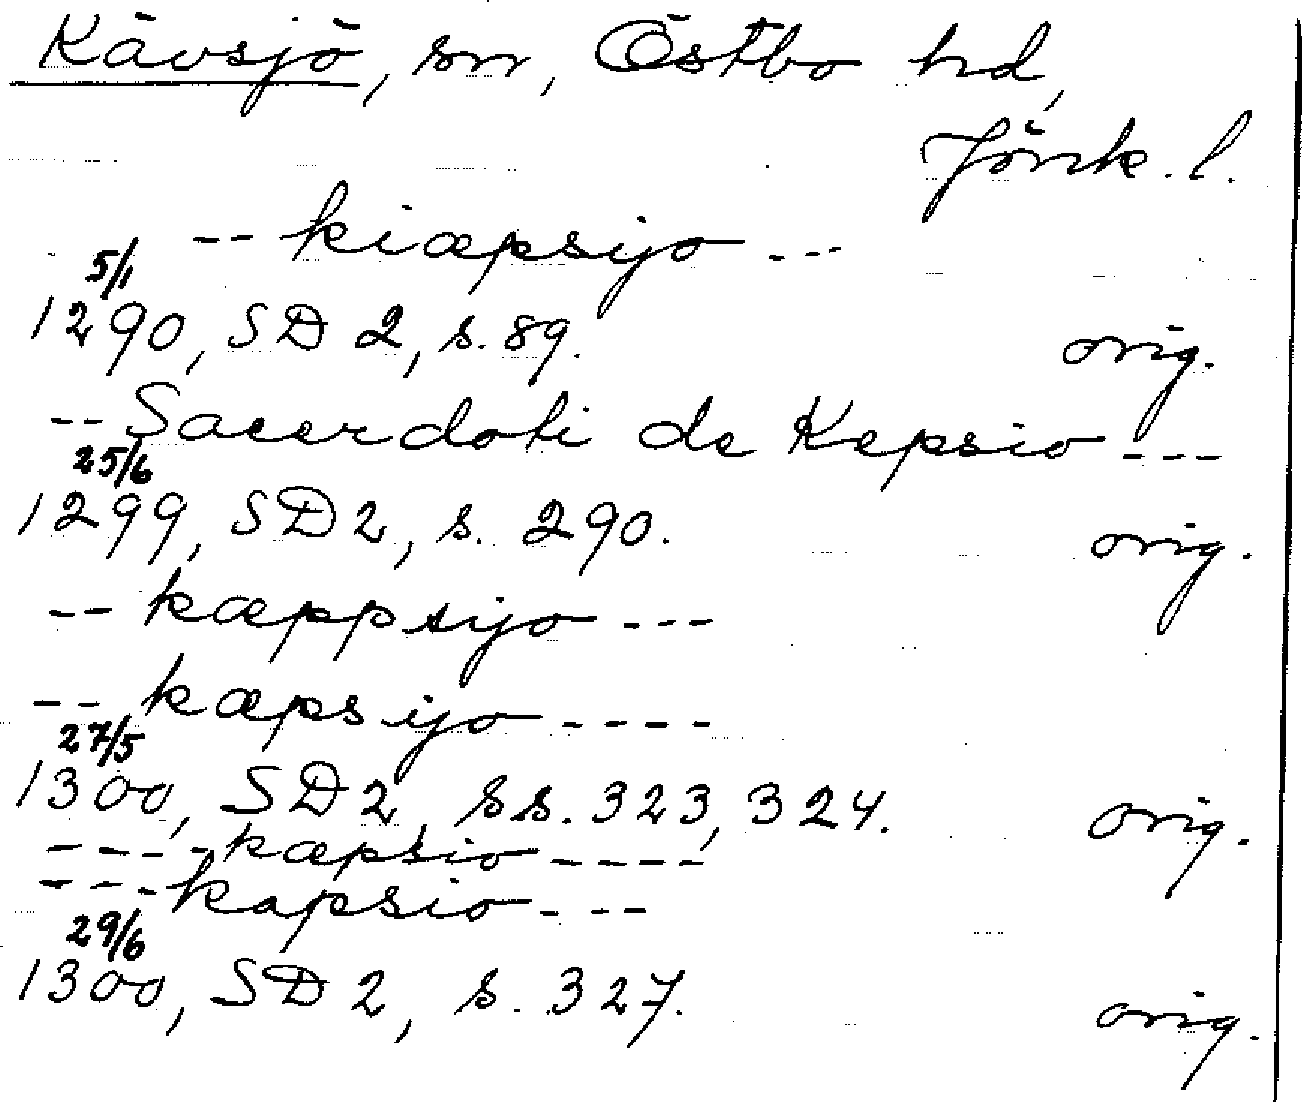 Kävsjö, sn, Östbo hd,
Jönk. l.
-- kiæpsijo ---
5/1
1290, SD 2, s. 89. orig.
-- Sacerdoti de Kepsio ---
25/6
1299, SD 2, s. 290. orig.
-- kæppsijo ---
-- kæpsijo ----
27/5
1300, SD 2, ss. 323, 324. orig.
---- kæpsio ----
--- kapsio ---
29/6
1300, SD 2, s. 327. orig.